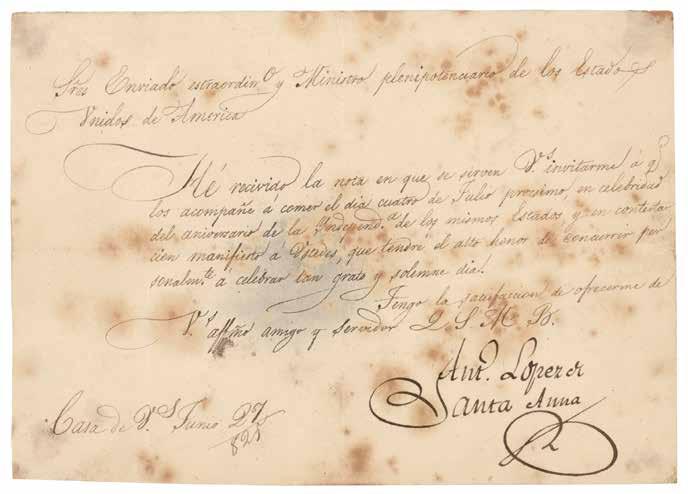 Sres Enviado estraordin.º y Ministro plenipotenciario de los Estados
Vnidos de America
Hé recivido la nota en que se sirven V.s invitarme á q.e
los acompañe á comer el dia cuatro de Julio procsimo, en celebridad
del aniverzario de la Independ.a de los mismos Estados y en contesta
cion manifiesto á Vstedes, que tendré el alto honor de concurrir per
sonalm.te á celebrar tan grato y solemne dia.
Tengo la satisfaccion de ofrecerme de
V.s affmo amigo y servidor Q S M B.
Ant.o Lopez de
Santa Anna
Casa de V.s Junio 27/
828